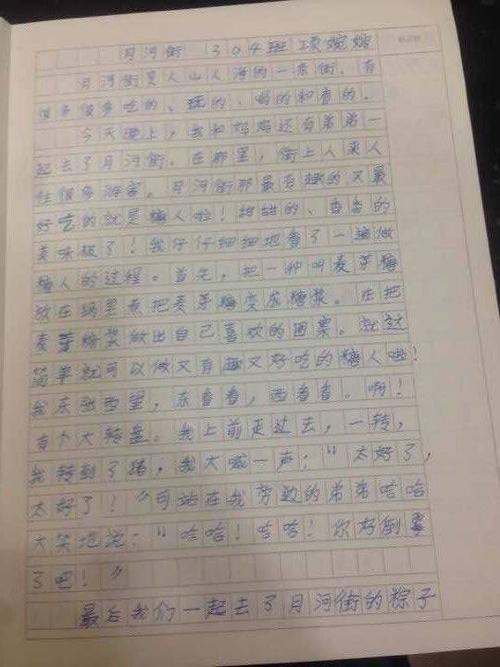 月河街 304班 项婉嫱
月河街是人山人海的一条街，有
很多很多吃的、玩的、喝的和看的。
今天晚上，我和妈妈还有弟弟一
起去了月河街。在那里，街上人来人
往很多游客。月河街那最有趣的又最
好吃的就是糖人啦！甜甜的、香香的
美味极了！我仔仔细细地看了一遍做
糖人的过程。首先，把一种叫麦芽糖
放在锅里煮把麦芽糖变成糖浆。在把
麦芽糖浆做出自己喜欢的图案。就这
简单就可以做又有趣又好吃的糖人啦！
我东张西望，东看看，西看看。啊！
有个大转盘。我上前走过去，一转，
我转到了猪，我大喊一声：“太好了，
太好了！”可站在我旁边的弟弟哈哈
大笑地说：“哈哈！哈哈！你好倒霉
了吧！”
最后我们一起去了月河街的粽子